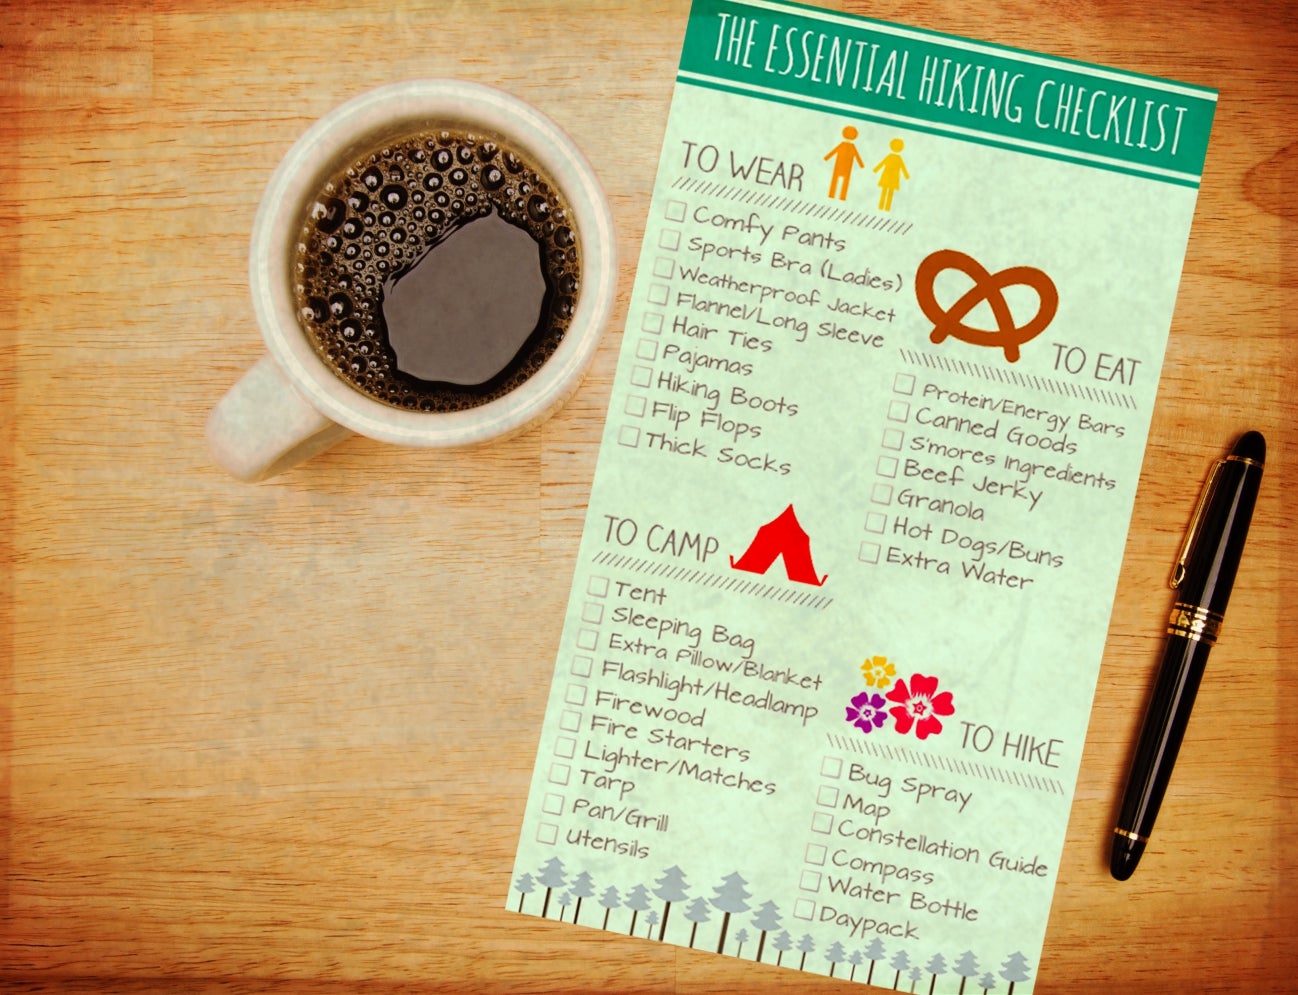 THE ESSENTIAL HIKING CHECKLIST
TO WEAR
Comfy Pants
Sports Bra (Ladies)
Weatherproof Jacket
Flannel/Long Sleeve
Hair Ties
Pajamas
Hiking Boots
Flip Flops
Thick Socks
TO EAT
Protein/Energy Bars
Canned Goods
S'mores Ingredients
Beef Jerky
Granola
Hot Dogs/Buns
Extra Water
TO CAMP
Tent
Sleeping Bag
Extra Pillow/Blanket
Flashlight/Headlamp
Firewood
Fire Starters
Lighter/Matches
Tarp
Pan/Grill
Utensils
TO HIKE
Bug Spray
Map
Constellation Guide
Compass
Water Bottle
Daypack